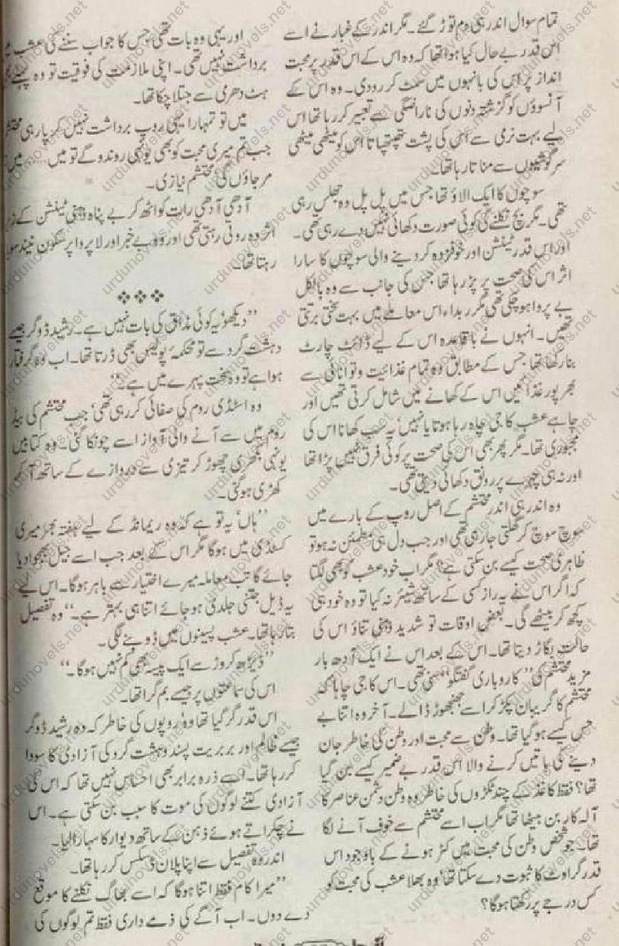 تمام سوال اندر ہی دم توڑ گئے۔ مگر اندر کے غبار نے اسے
اس قدر بے حال کیا ہوا تھا کہ وہ اس کے اس قدر پر محبت
انداز پر اس کی بانہوں میں سمٹ کر رو دی۔ وہ اس کے
آنسوؤں کو گزشتہ دنوں کی ناراضگی سے تعبیر کر رہا تھا اس
لیے بہت نرمی سے اس کی پشت تھپتھپاتا اس کو میٹھی میٹھی
سرگوشیوں سے مناتا رہا تھا۔
سوچوں کا ایک الاؤ تھا جس میں پل پل وہ جھلس رہی
تھی۔ مگر بچ نکلنے کی کوئی صورت دکھائی نہیں دے رہی تھی۔
اور اس قدر ٹینشن اور خوفزدہ کر دینے والی سوچوں کا سارا
اثر اس کی صحت پر پڑ رہا تھا جس کی جانب سے وہ بالکل
بے پروا ہو چکی تھی مگر ربداء اس معاملے میں بہت سختی برتی
تھیں۔ انہوں نے باقاعدہ اس کے لیے ڈائٹ چارٹ
بنا رکھا تھا جس کے مطابق وہ تمام غذائیت و توانائی سے
بھرپور غذائیں اس کے کھانے میں شامل کرتی تھیں اور
چاہے عشب کا جی چاہ رہا ہوتا یا نہیں سب کھانا اس کی
مجبوری تھا۔ مگر پھر بھی اس کی صحت پر کوئی فرق نہیں پڑا تھا
اور نہ ہی چہرے پر رونق دکھائی دیتی تھی۔
وہ اندر ہی اندر محتشم کے اصل روپ کے بارے میں
سوچ سوچ کر گھلتی جا رہی تھی اور جب دل ہی مطمئن نہ ہو تو
ظاہری صحت کیسے بن سکتی ہے؟ مگر اب خود عشب کو بھی لگتا
کہ اگر اس نے یہ راز کسی کے ساتھ شیئر نہ کیا تو وہ خود ہی
کچھ کر بیٹھے گی۔ بعض اوقات تو شدید ذہنی تناؤ اس کی
حالت بگاڑ دیتا تھا۔ اس کے بعد اس نے ایک آدھ بار
مزید محتشم کی ’’کاروباری گفتگو‘‘ سنی تھی۔ اس کا جی چاہا کہ
محتشم کا گریبان پکڑ کر اسے جھنجھوڑ ڈالے۔ آخر وہ اتنا بے
حس کیسے ہو گیا تھا۔ وطن سے محبت اور وطن کی خاطر جان
دینے کی باتیں کرنے والا اس قدر بے ضمیر کیسے بن گیا
تھا؟ فقط کاغذ کے چند ٹکڑوں کی خاطر وہ وطن دشمن عناصر کا
آلہ کار بن بیٹھا تھا مگر اب اسے محتشم سے خوف آنے لگا
تھا۔ جو شخص وطن کی محبت میں کٹر ہونے کے باوجود اس
قدر گراوٹ کا ثبوت دے سکتا تھا وہ بھلا عشب کی محبت کو
کس درجے پر رکھتا ہوگا؟
اور یہی وہ بات تھی جس کا جواب سننے کی عشب میں
برداشت نہیں تھی۔ اپنی ملازمت کی فوقیت تو وہ پہلے
ہٹ دھرمی سے جتلا چکا تھا۔
میں تو تمہارا یہی روپ برداشت نہیں کر پا رہی محتشم
جب تم میری محبت کو بھی یونہی روندو گے تو میں ...... میں
مر جاؤں گی محتشم نیازی۔
آدھی آدھی رات کو اٹھ کر بے پناہ ذہنی ٹینشن کے زیر
اثر وہ روتی رہتی تھی اور وہ بے خبر اور لاپروا پرسکون نیند سویا
رہتا تھا۔
❖❖❖
’’دیکھو یہ کوئی مذاق کی بات نہیں ہے۔ رشید ڈوگر جیسے
دہشت گرد سے تو محکمہ پولیس بھی ڈرتا تھا۔ اب وہ گرفتار
ہوا ہے تو وہ سخت پہرے میں ہے۔‘‘
وہ اسٹڈی روم کی صفائی کر رہی تھی جب محتشم کی بیڈ
روم میں سے آنے والی آواز اسے چونکا گئی۔ وہ کتابیں
یونہی بکھری چھوڑ کر تیزی سے دروازے کے ساتھ آ کر
کھڑی ہو گئی۔
’’ہاں یہ تو ہے کہ وہ ریمانڈ کے لیے ہفتہ بھر میری
کسٹڈی میں ہوگا مگر اس کے بعد جب اسے جیل بھجوا دیا
جائے گا تب معاملہ میرے اختیار سے باہر ہوگا۔ اس لیے
یہ ڈیل جتنی جلدی ہو جائے اتنا ہی بہتر ہے۔‘‘ وہ تفصیل
بتا رہا تھا۔ عشب پسینوں میں ڈوبنے لگی۔
’’ڈیڑھ کروڑ سے ایک پیسہ بھی کم نہیں ہوگا۔‘‘
اس کی سماعتوں پر جیسے بم گرا تھا۔
اس قدر گر گیا تھا وہ روپوں کی خاطر کہ وہ رشید ڈوگر
جیسے ظالم اور بربریت پسند دہشت گرد کی آزادی کا سودا
کر رہا تھا۔ اسے ذرہ برابر بھی احساس نہیں تھا کہ اس کی
آزادی کتنے لوگوں کی موت کا سبب بن سکتی ہے۔ اس
نے چکراتے ہوئے ذہن کے ساتھ دیوار کا سہارا لیا۔
اندر وہ تفصیل سے اپنا پلان ڈسکس کر رہا تھا۔
’’میرا کام فقط اتنا ہوگا کہ اسے بھاگ نکلنے کا موقع
دے دوں۔ اب آگے کی ذمے داری فقط تم لوگوں کی
urdunovels.net